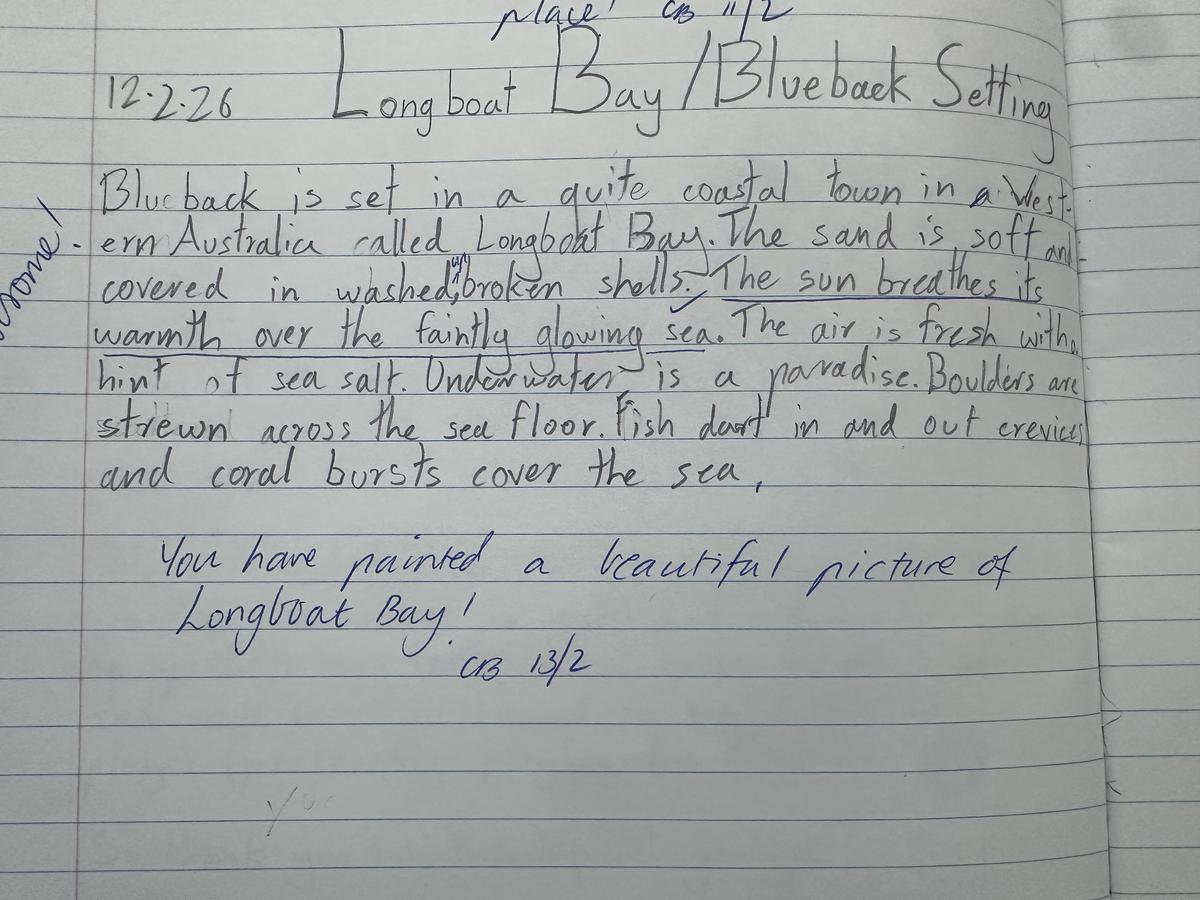 place! CB 11/2
12.2.26 Longboat Bay/Blueback Setting
Blueback is set in a quite coastal town in a West-
ern Australia called Longboat Bay. The sand is soft and
covered in washed up, broken shells. The sun breathes its
warmth over the faintly glowing sea. The air is fresh with a
hint of sea salt. Underwater is a paradise. Boulders are
strewn across the sea floor. Fish dart in and out crevices
and coral bursts cover the sea.
You have painted a beautiful picture of
Longboat Bay!
CB 13/2